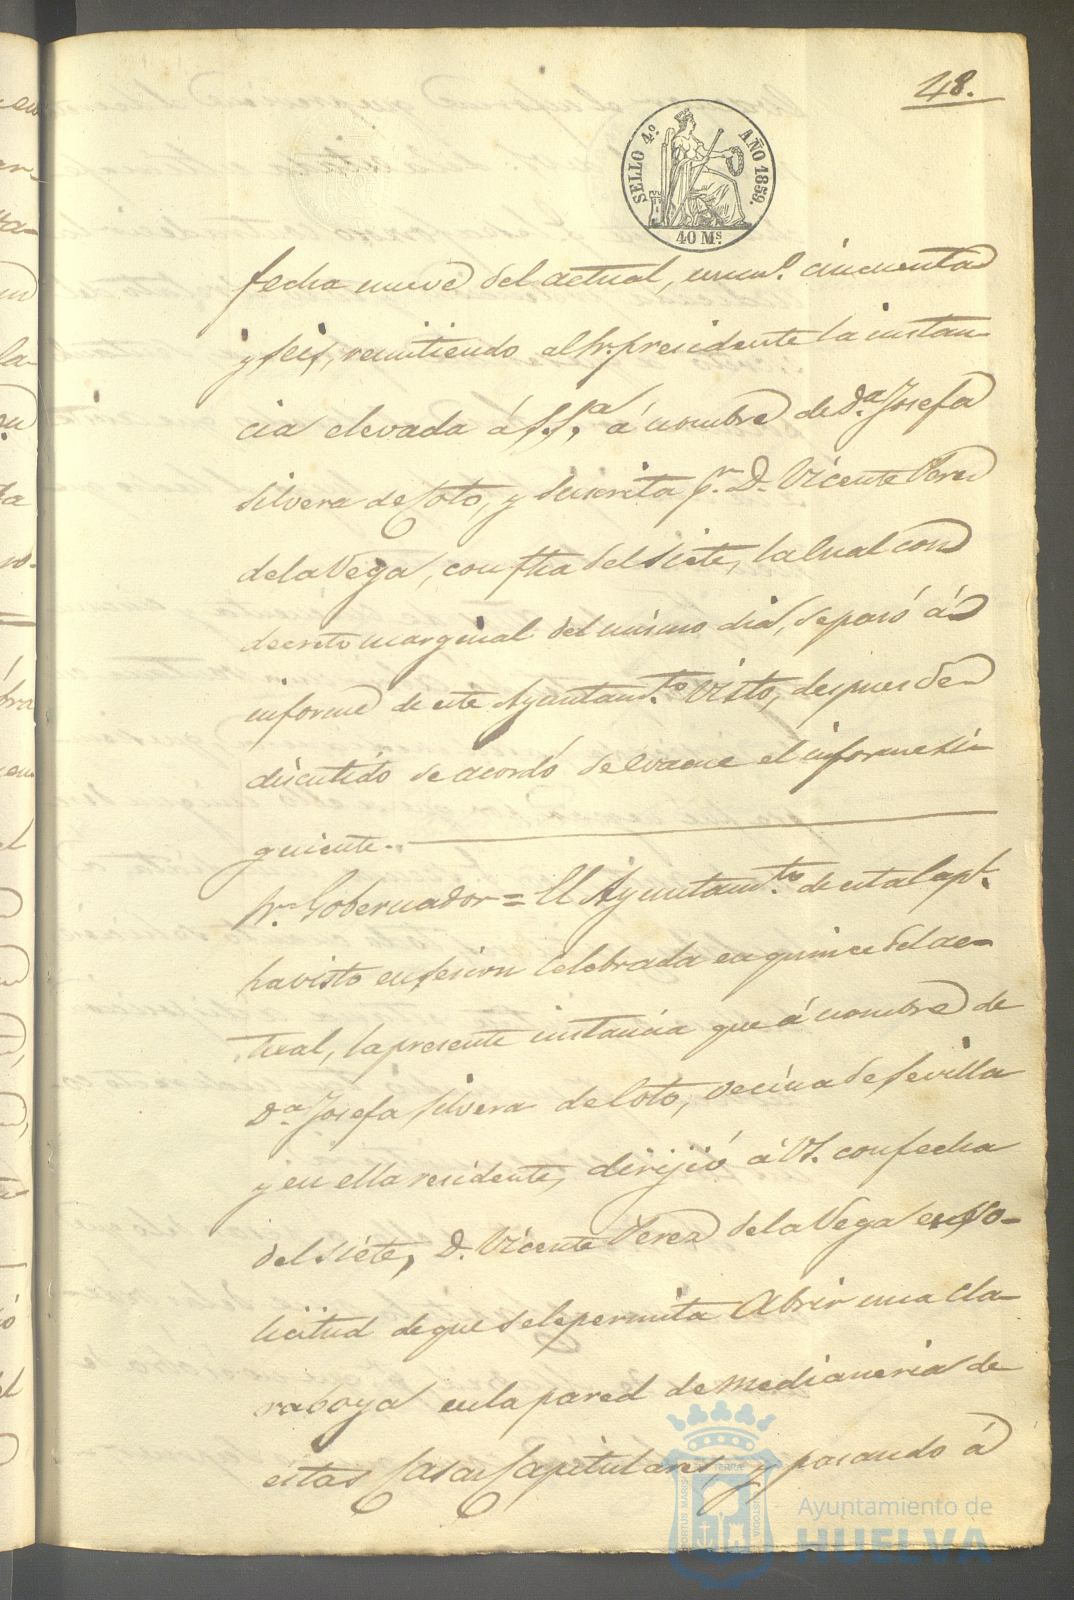 48.
SELLO 4.º AÑO 1859.
40 Ms.
fecha nueve del actual, numº. cincuenta
y seis, remitiendo al Sr. presidente la instan-
cia elevada á S.Sª. á nombre de Dª. Josefa
Silvera de Soto, y suscrita pr. D. Vicente Perez
de la Vega, con fha del siete, la cual con
decreto marginal del mismo dia, se pasó á
informe de este Ayuntamto. Visto, despues de
discutido se acordó se evacue el informe si-
guiente.
Sr. Gobernador = El Ayuntamto. de esta Capl.
ha visto en sesion celebrada en quince del ac-
tual, la presente instancia que á nombre de
Dª. Josefa Silvera de Soto, vecina de Sevilla
y en ella residente, dirijió á VS. con fecha
del siete, D. Vicente Perez de la Vega en so-
licitud de que se le permita abrir una cla-
raboya en la pared de medianeria de
estas Casas Capitulares, y pasando á
Ayuntamiento de
HUELVA